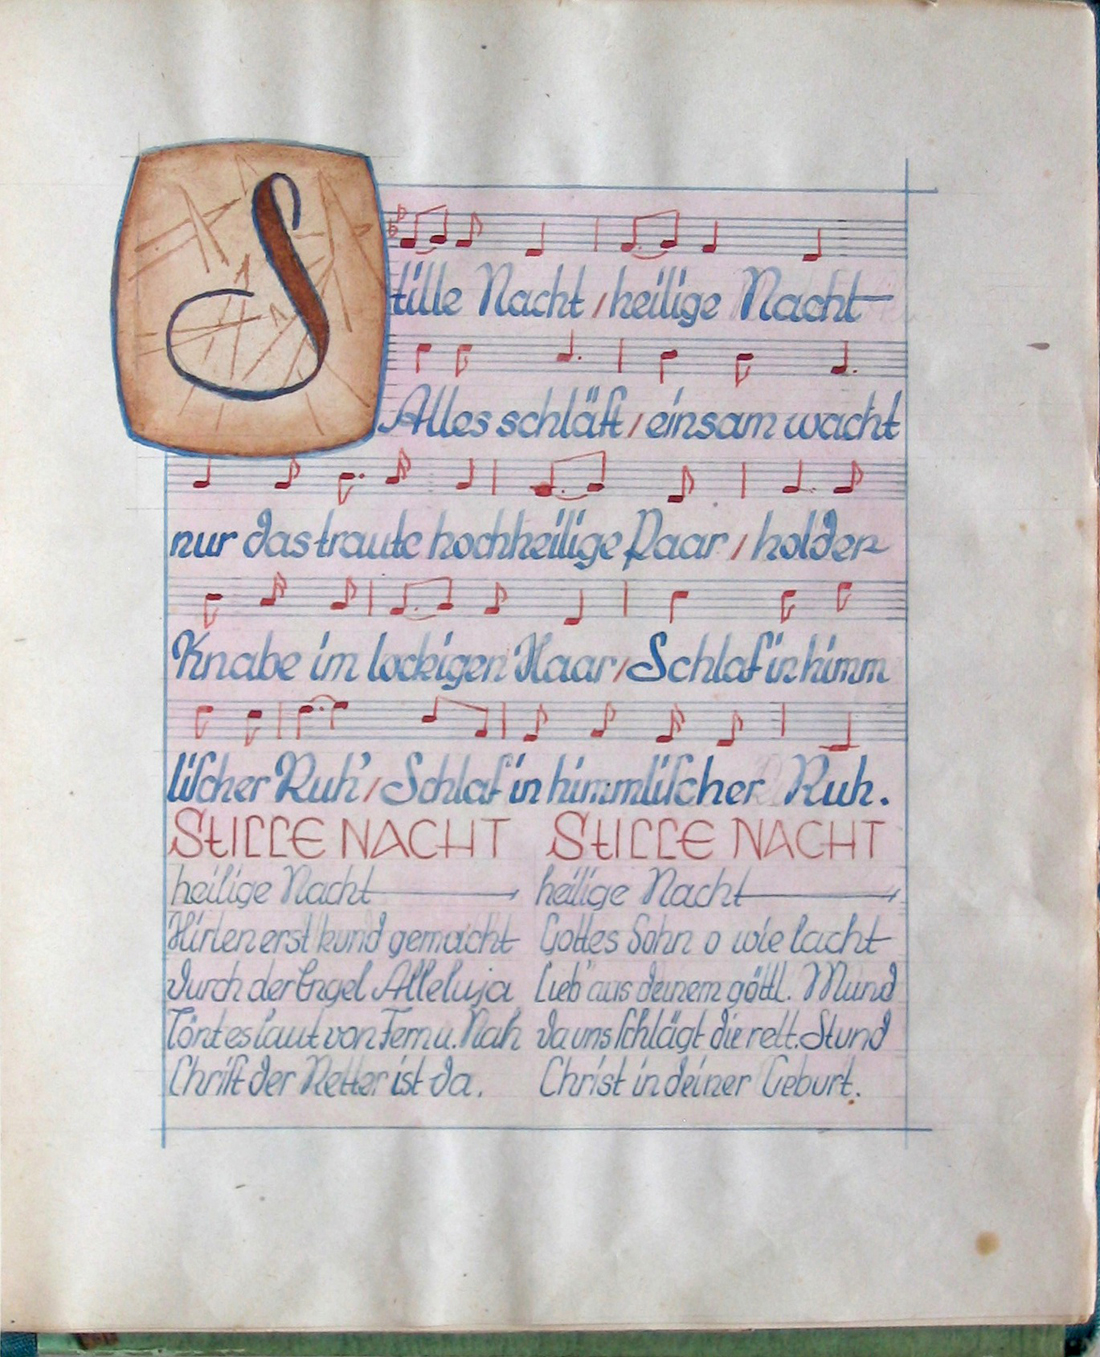 Stille Nacht / heilige Nacht
Alles schläft / einsam wacht
nur das traute hochheilige Paar / holder
Knabe im lockigen Haar / Schlaf in himm
liſcher Ruh' / Schlaf in himmliſcher Ruh.
STILLE NACHT
heilige Nacht
Hirten erst kund gemacht
durch der Engel Alleluja
Tönt es laut von Fern u. Nah
Chriſt der Retter ist da.
STILLE NACHT
heilige Nacht
Gottes Sohn o wie lacht
Lieb' aus deinem göttl. Mund
da uns ſchlägt die rett. Stund
Christ in deiner Geburt.